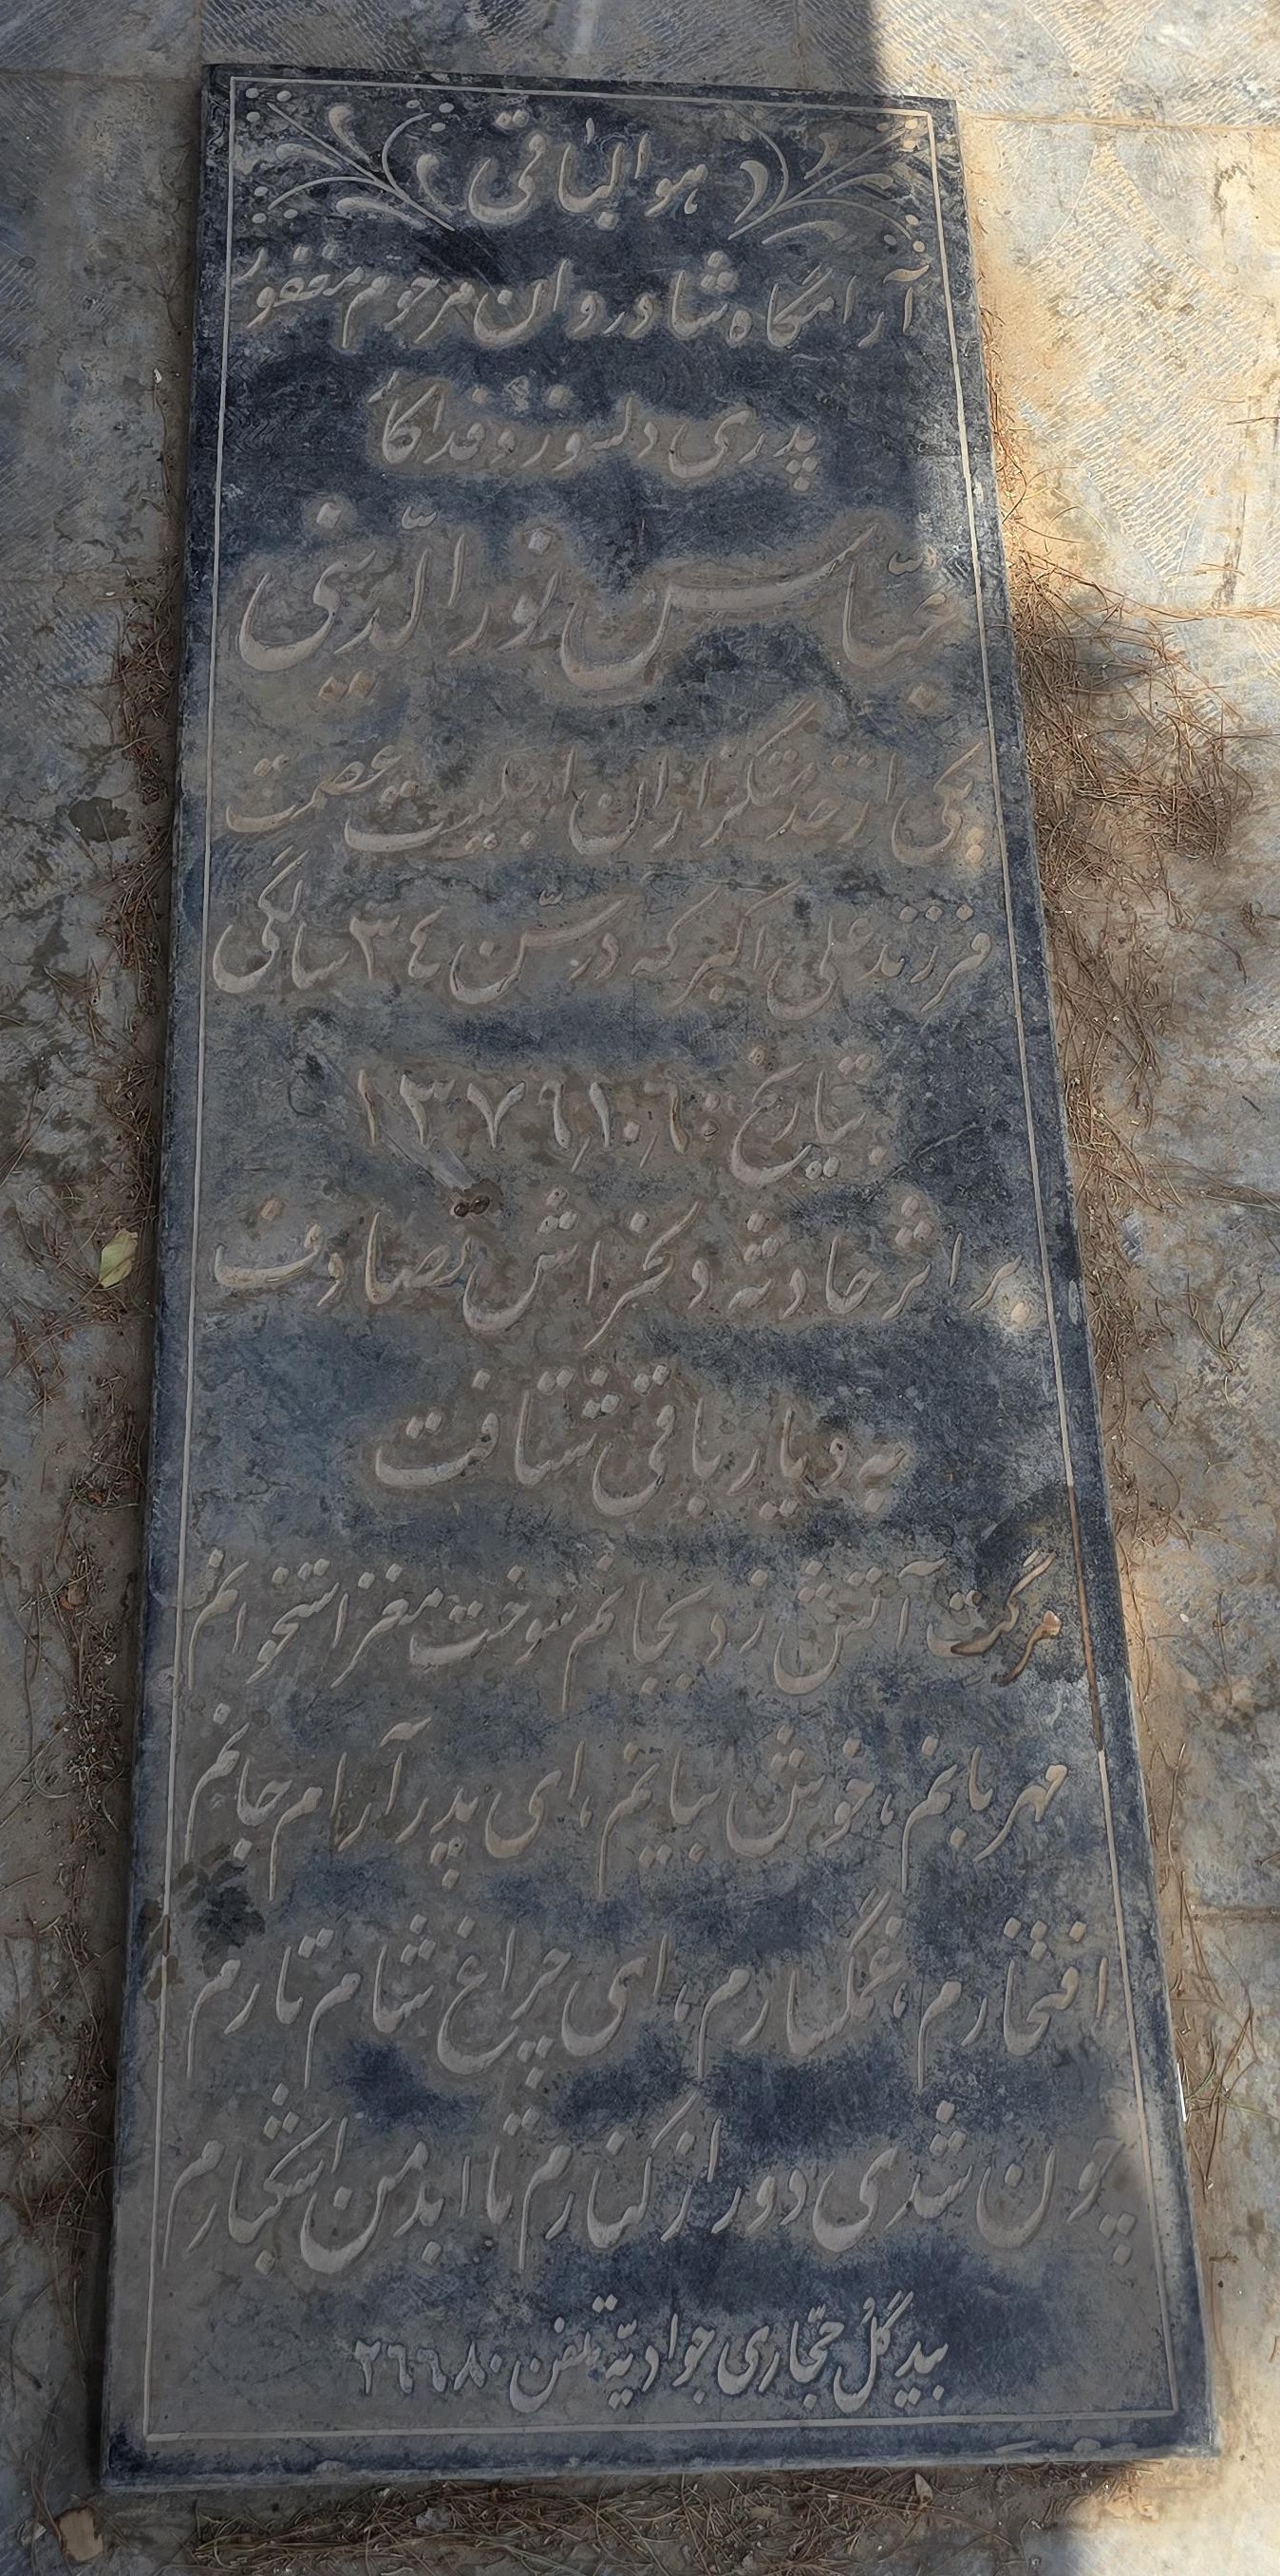 هوالباقی
آرامگاه شادروان مرحوم مغفور
پدری دلسوز و فداکار
عبّاس نورالدّینی
یکی از خدمتگزاران اهلبیت عصمت
فرزند علی اکبر که در سّن ۳٤ سالگی
بتاریخ ۱۳۷۹,۱۰,٦
بر اثر حادثه دلخراش تصادف
به دیار باقی شتافت
مرگت آتش زد بجانم سوخت مغز استخوانم
مهربانم، خوش بیانم، ای پدر آرام جانم
افتخارم، غمگسارم، ای چراغ شام تارم
چون شدی دور از کنارم تا ابد من اشکبارم
بیدگل حجّاری جوادیّه تلفن ۲٦٦۸۰